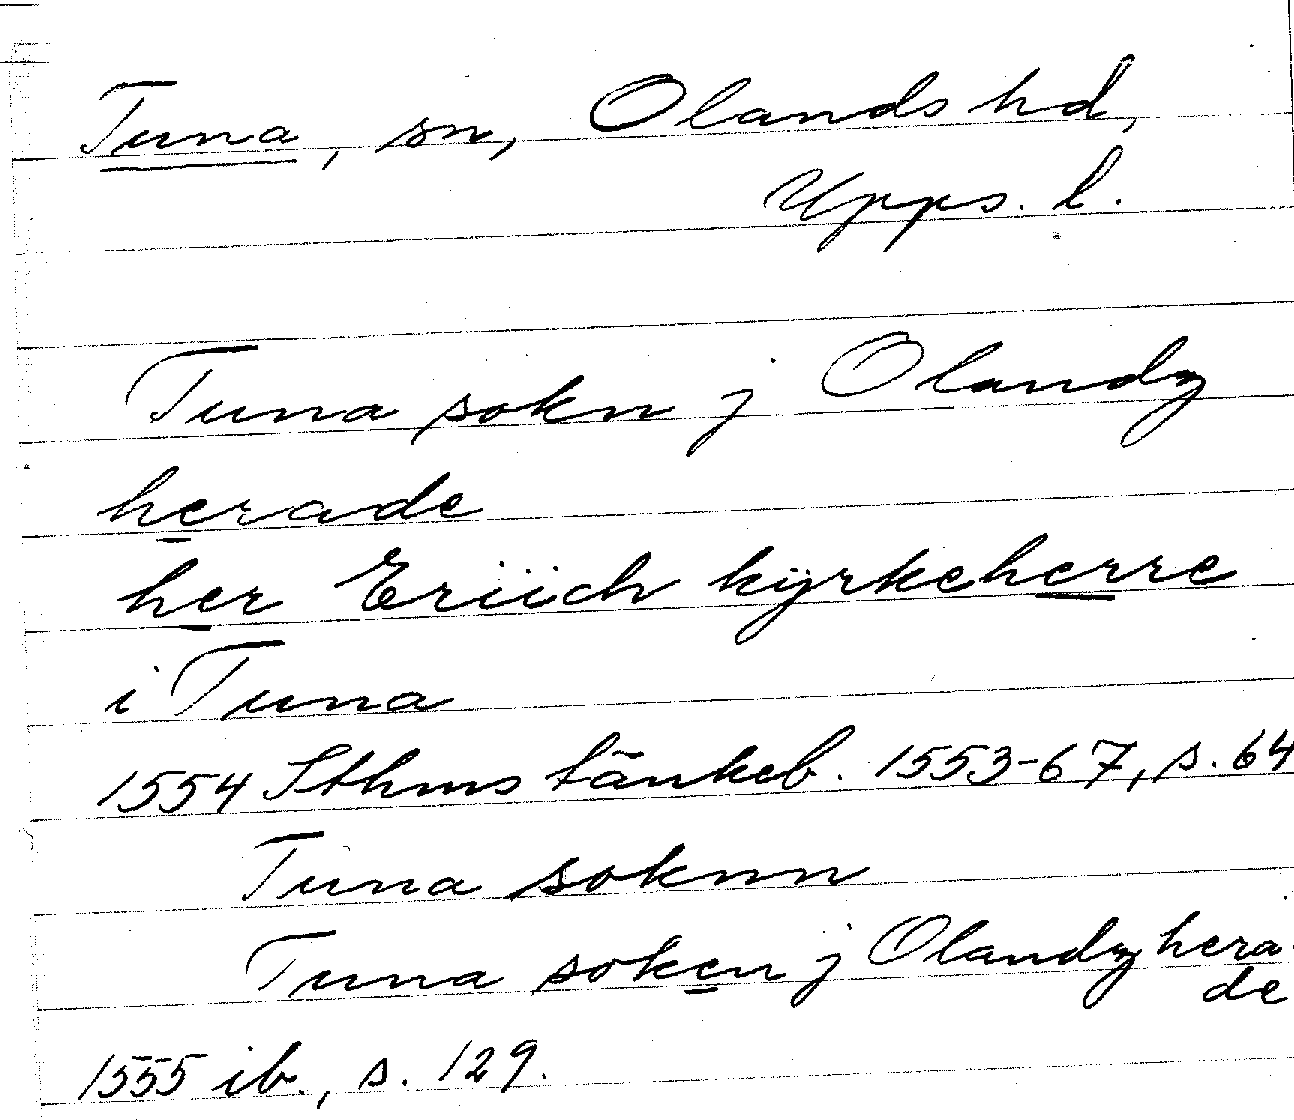 Tuna, sn, Olands hd,
Upps. l.
Tuna sokn j Olandz
herade
her Eriich kyrkeherre
i Tuna
1554 Sthms tänkeb. 1553-67, s. 64
Tuna soknn
Tuna soken j Olandz hera-
de
1555 ib., s. 129.